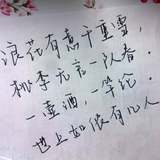 浪花有意千重雪，
桃李无言一队春。
一壶酒，一竿纶，
世上如侬有几人